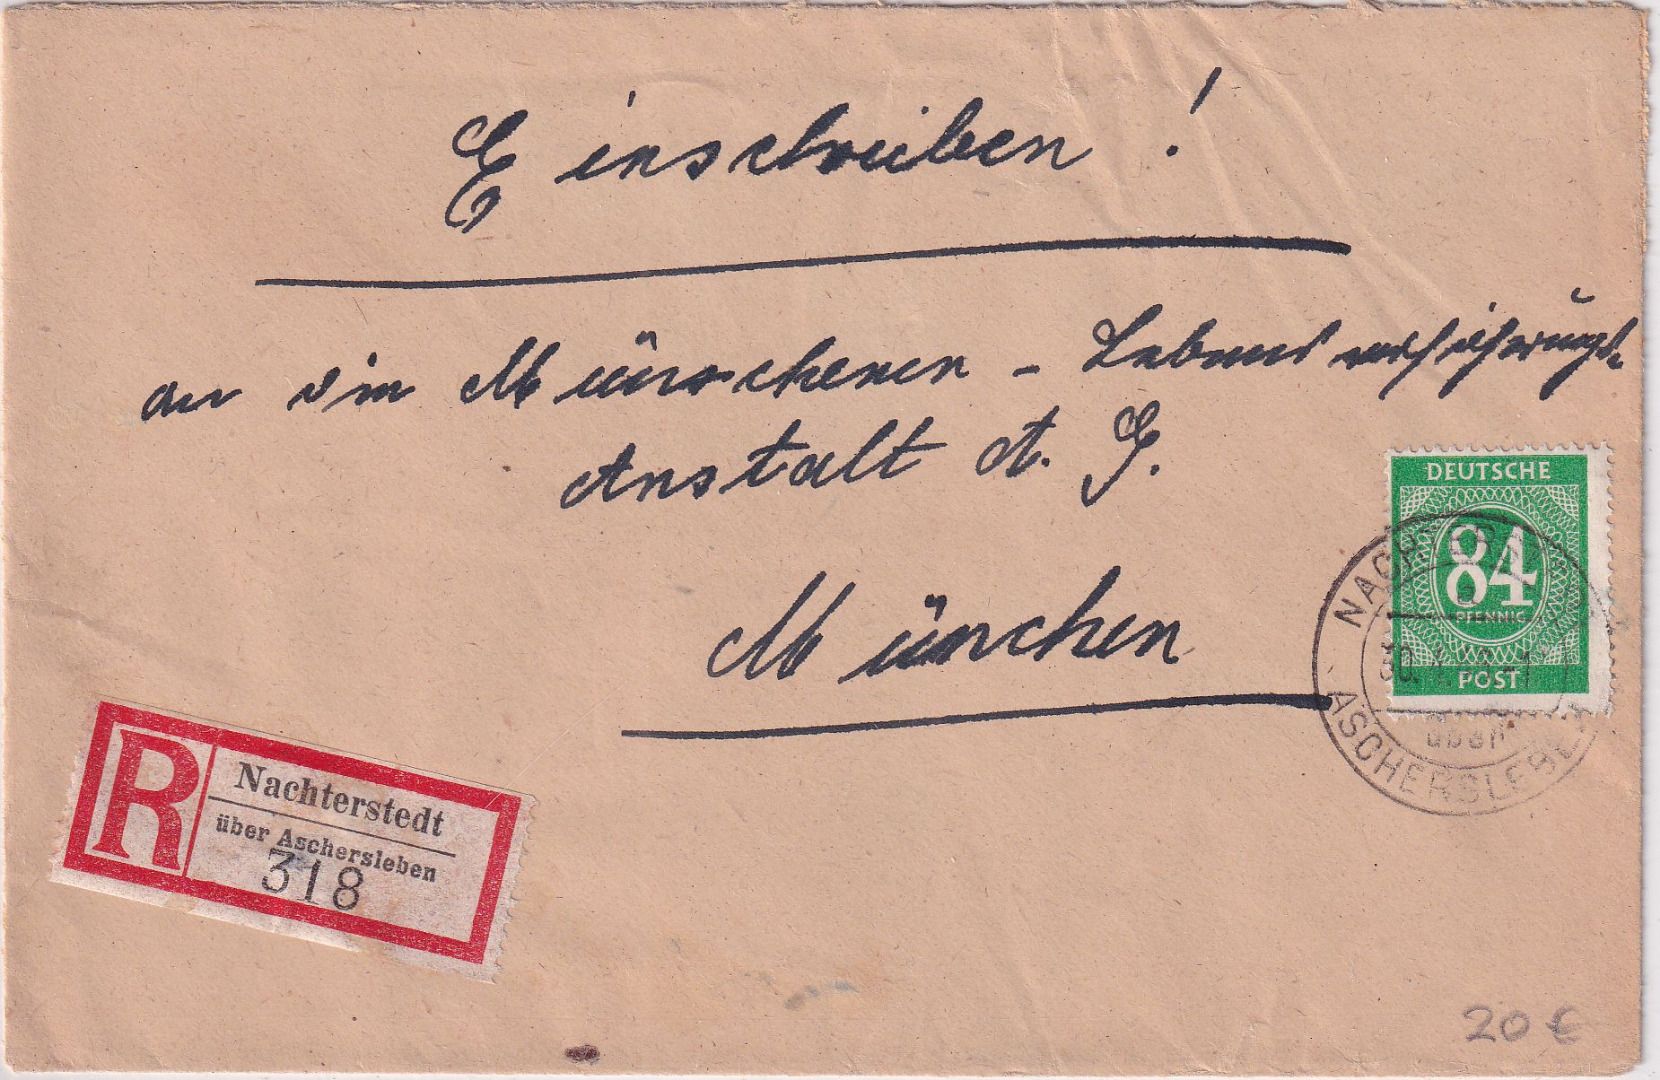 Einschreiben!
an die Münchener - Lebensversicherungs-
Anstalt A. G.
München
DEUTSCHE
84
PFENNIG
POST
NACHTERSTEDT
über
ASCHERSLEBEN
R
Nachterstedt
über Aschersleben
318
20 €